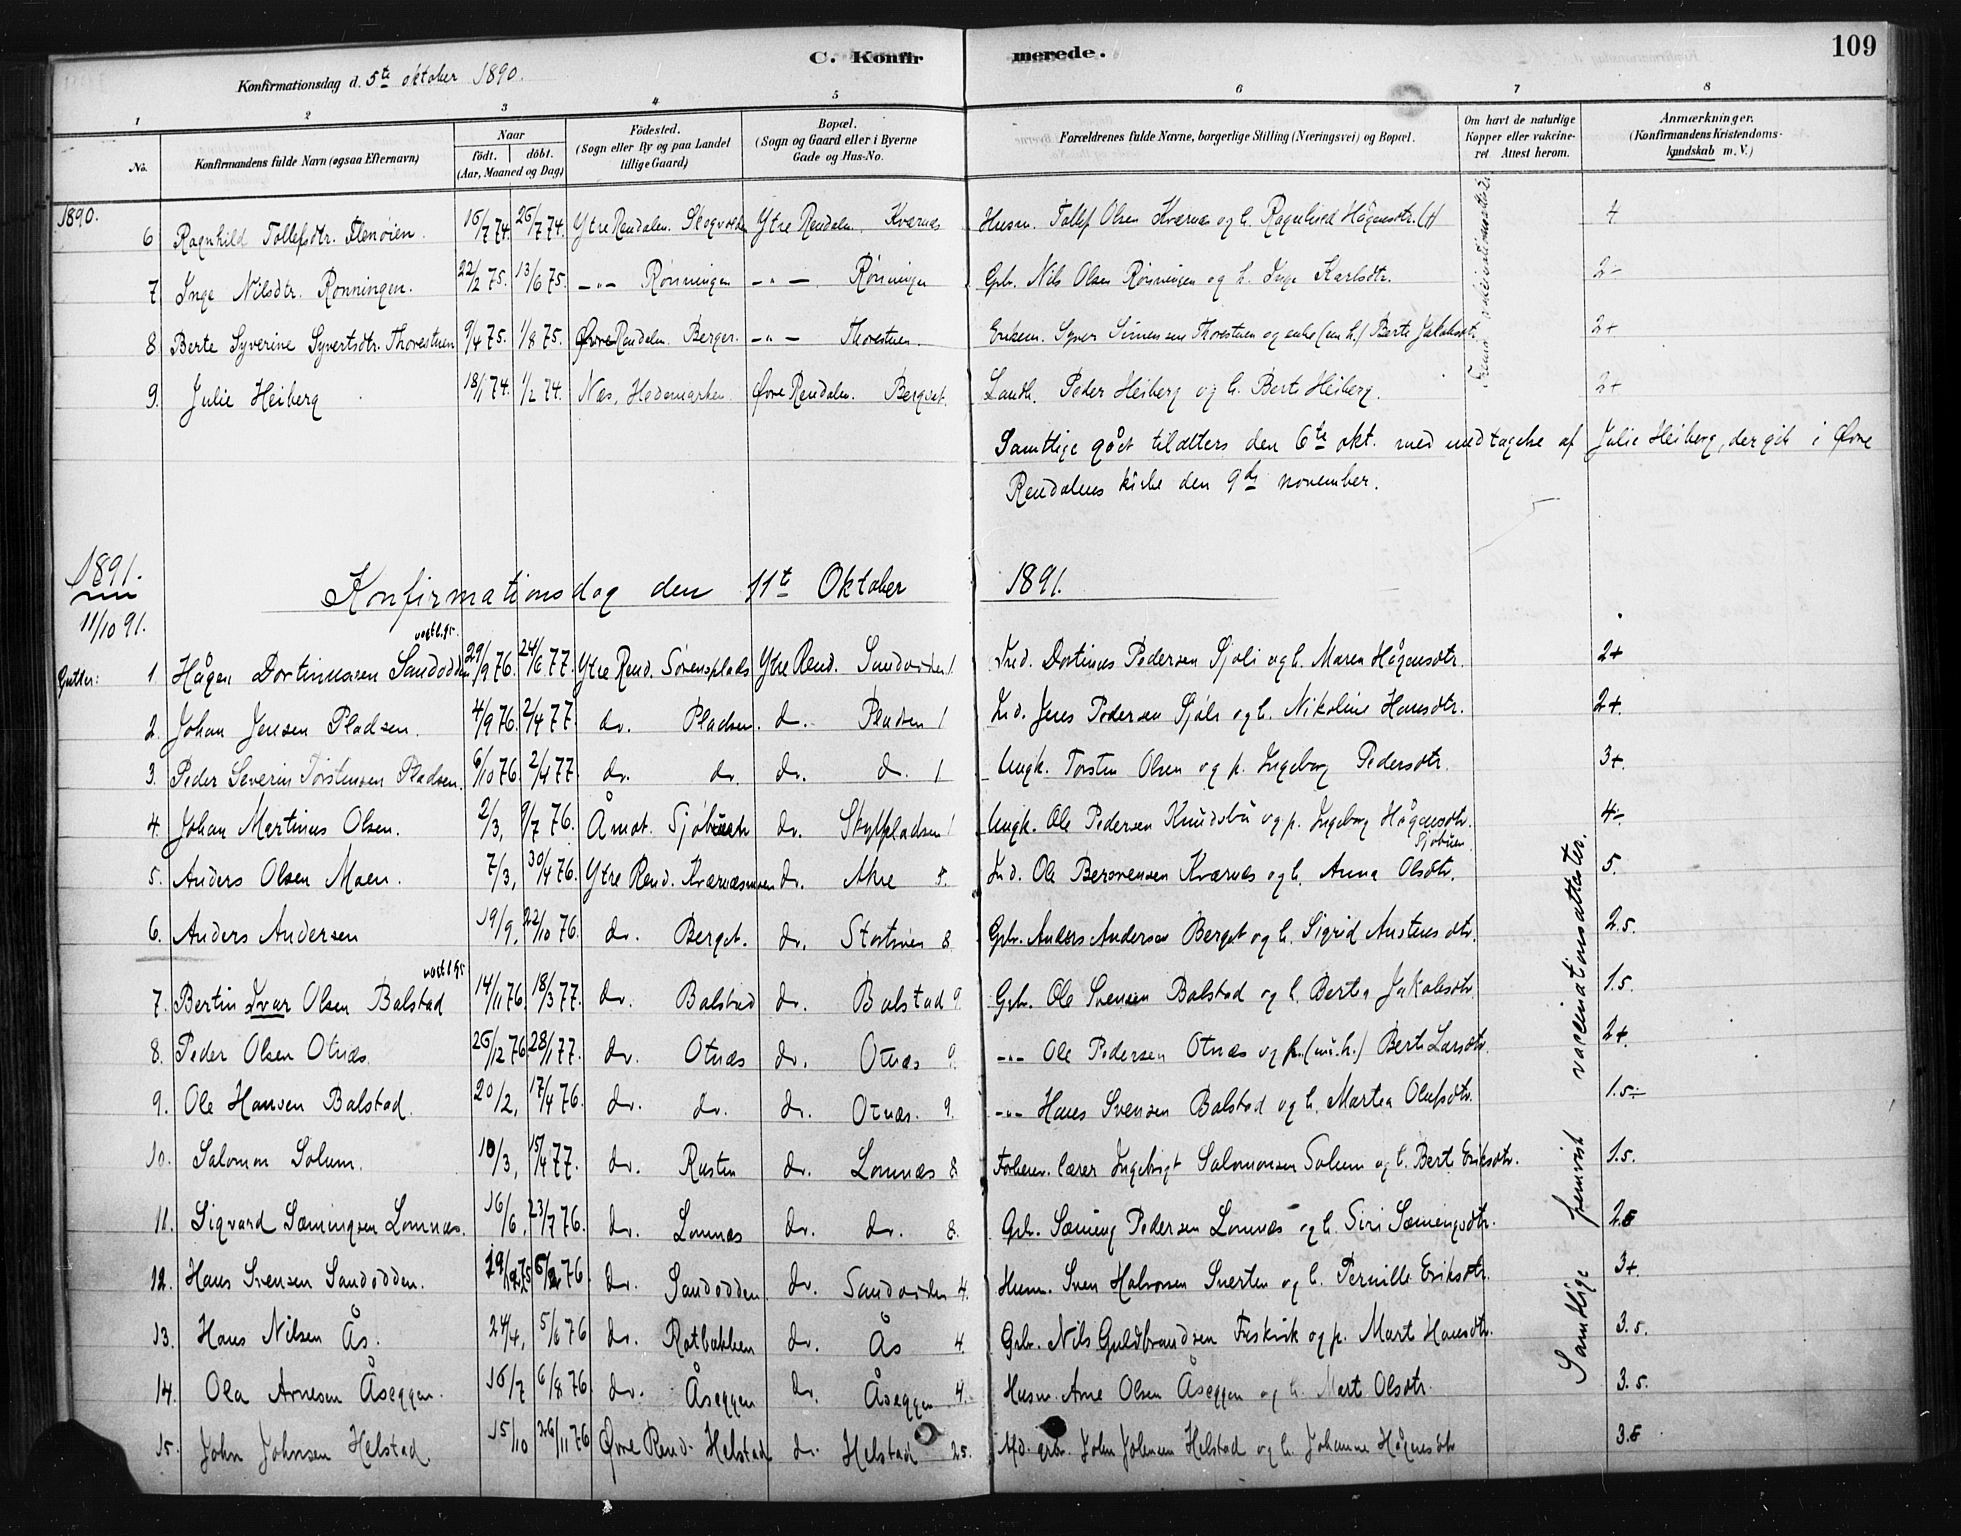 C. Konfirmerede. 109
Konfirmationsdag d. 5te oktober 1890.
1 2 3 4 5 6 7 8
No. Konfirmandens fulde Navn (ogsaa Efternavn) Naar født. døbt. (Aar, Maaned og Dag) Fødested. (Sogn eller By og paa Landet tillige Gaard) Bopæl. (Sogn og Gaard eller i Byerne Gade og Hus-No. Forældrenes fulde Navne, borgerlige Stilling (Næringsvei) og Bopæl. Om havt de naturlige Kopper eller vakcineret Attest herom. Anmærkninger. (Konfirmandens Kristendomskundskab m. V.)
1890.
6 Ragnhild Tollefsdtr. 15/7 74. 26/7 74. Ytre Rendalen. Ytre Rendalen. Kværnæs Husm. Tollef Olsen Kværnæs og h. Ragnhild Høgensdtr. (†) 4
7 Inge Nilsdtr. Rønningen. 22/2 75. 13/6 75. -"- Rønningen -"- Rønningen Gbr. Nils Olsen Rønningen og h. Inge Karlsdtr. 2-
8 Berte Syverine Syvertsdtr. Thorestuen 9/4 75. 1/8 75. Øvre Rendalen. Berger. -"- Thorestuen. Enkem. Syver Simensen Thorestuen og enke (nu h.) Berte Jakobsdtr. 2+
9. Julie Heiberg 18/1 74. 1/2 74. Næs, Hedemarken. Øvre Rendalen. Berget. Landh. Peder Heiberg og h. Bert Heiberg. 2+
Samtlige gået tilalters den 6te okt. med undtagelse af Julie Heiberg, der gik i Øvre
Rendalens kirke den 9de november.
1891.
Konfirmationsdag den 11te Oktober 1891.
11/10 91.
Gutter: 1. Hågen Dortinussen Sandodden 29/9 76. 24/6 77. Ytre Rend. Sørensplads Ytre Rend. Sandodden 1 Ind. Dortinus Pedersen Sjøli og h. Maren Hågensdtr. 2+
2. Johan Jensen Pladsen. 4/9 76. 2/4 77. do. Pladsen. do. Pladsen 1 Ind. Jens Pedersen Sjøli og h. Nikoline Hansdtr. 2+.
3. Peder Severin Torstensen Pladsen. 6/10 76. 2/4 77. do. do. do. do. 1 Ungk. Torsten Olsen og p. Ingeborg Pedersdtr. 3+.
4. Johan Martinus Olsen. 2/3, 9/7 76. Åmot. do. Skylpladsen 1 Ungk. Ole Pedersen Knudsbu og p. Ingeborg Hågensdtr. Sjøbuen 4-
5. Anders Olsen Moen. 7/3, 30/4 76. Ytre Rend. Kværnæsmoen do. Akre 5. Ind. Ole Bersvensen Kværnæs og h. Anna Olsdtr. 5.
6. Anders Andersen 19/9. 22/10 76. do. Berget. do. 8 Gbr. Anders Andersen Berget og h. Sigrid Austensdtr. 2.5.
7. Bertin Ivar Olsen Balstad 14/11 76. 18/3 77. do. Balstad do. Balstad 9. Gbr. Ole Svensen Balstad og h. Berta Jakobsdtr. 1.5.
8. Peder Olsen Otnæs. 26/12 76. 28/1 77. do. Otnæs do. Otnæs 9. -"- Ole Pedersen Otnæs og p. (nu h.) Berte Larsdtr. 2+.
9. Ole Hansen Balstad. 20/2, 17/4 76. do. do. do. Otnæs. 9. -"- Hans Svensen Balstad og h. Martea Olufsdtr. 1.5-
10. Salomon Solum. 10/3, 15/4 77. do. Rusten do. Lomnæs 8. lærer Ingebrigt Salomonsen Solum og h. Berte Eriksdtr. 1.5.
11. Sigvard Sæmingsen Lomnæs. 16/6, 23/7 76. do. Lomnæs do. do. 8. Gbr. Sæming Pedersen Lomnæs og h. Siri Sæmingsdtr. 2.5
12. Hans Svensen Sandodden. 29/12 75 do. Sandodden. do. Sandodden 4. Husm. Sven Halvorsen og h. Pernille Eriksdtr. 3+.
13. Hans Nilsen Ås. 24/4, 5/6 76 do. Rotbakken do. Ås 4. Gbr. Nils Guldbrandsen og p. Mart Hansdtr. 3.5.
14. Ola Arnesen Åseggen. 16/7 6/8 76 do. Åseggen do. Åseggen 4. Husm. Arne Olsen Åseggen og h. Mart Olsdtr. 3.5.
15. John Johnsen Helstad 15/10 26/11 76 Øvre Rend. Helstad do. Helstad 25. gbr. John Johnsen Helstad og h. Johanne Hågensdtr 3.5
Samtlige fremvist vaccinationsattester.